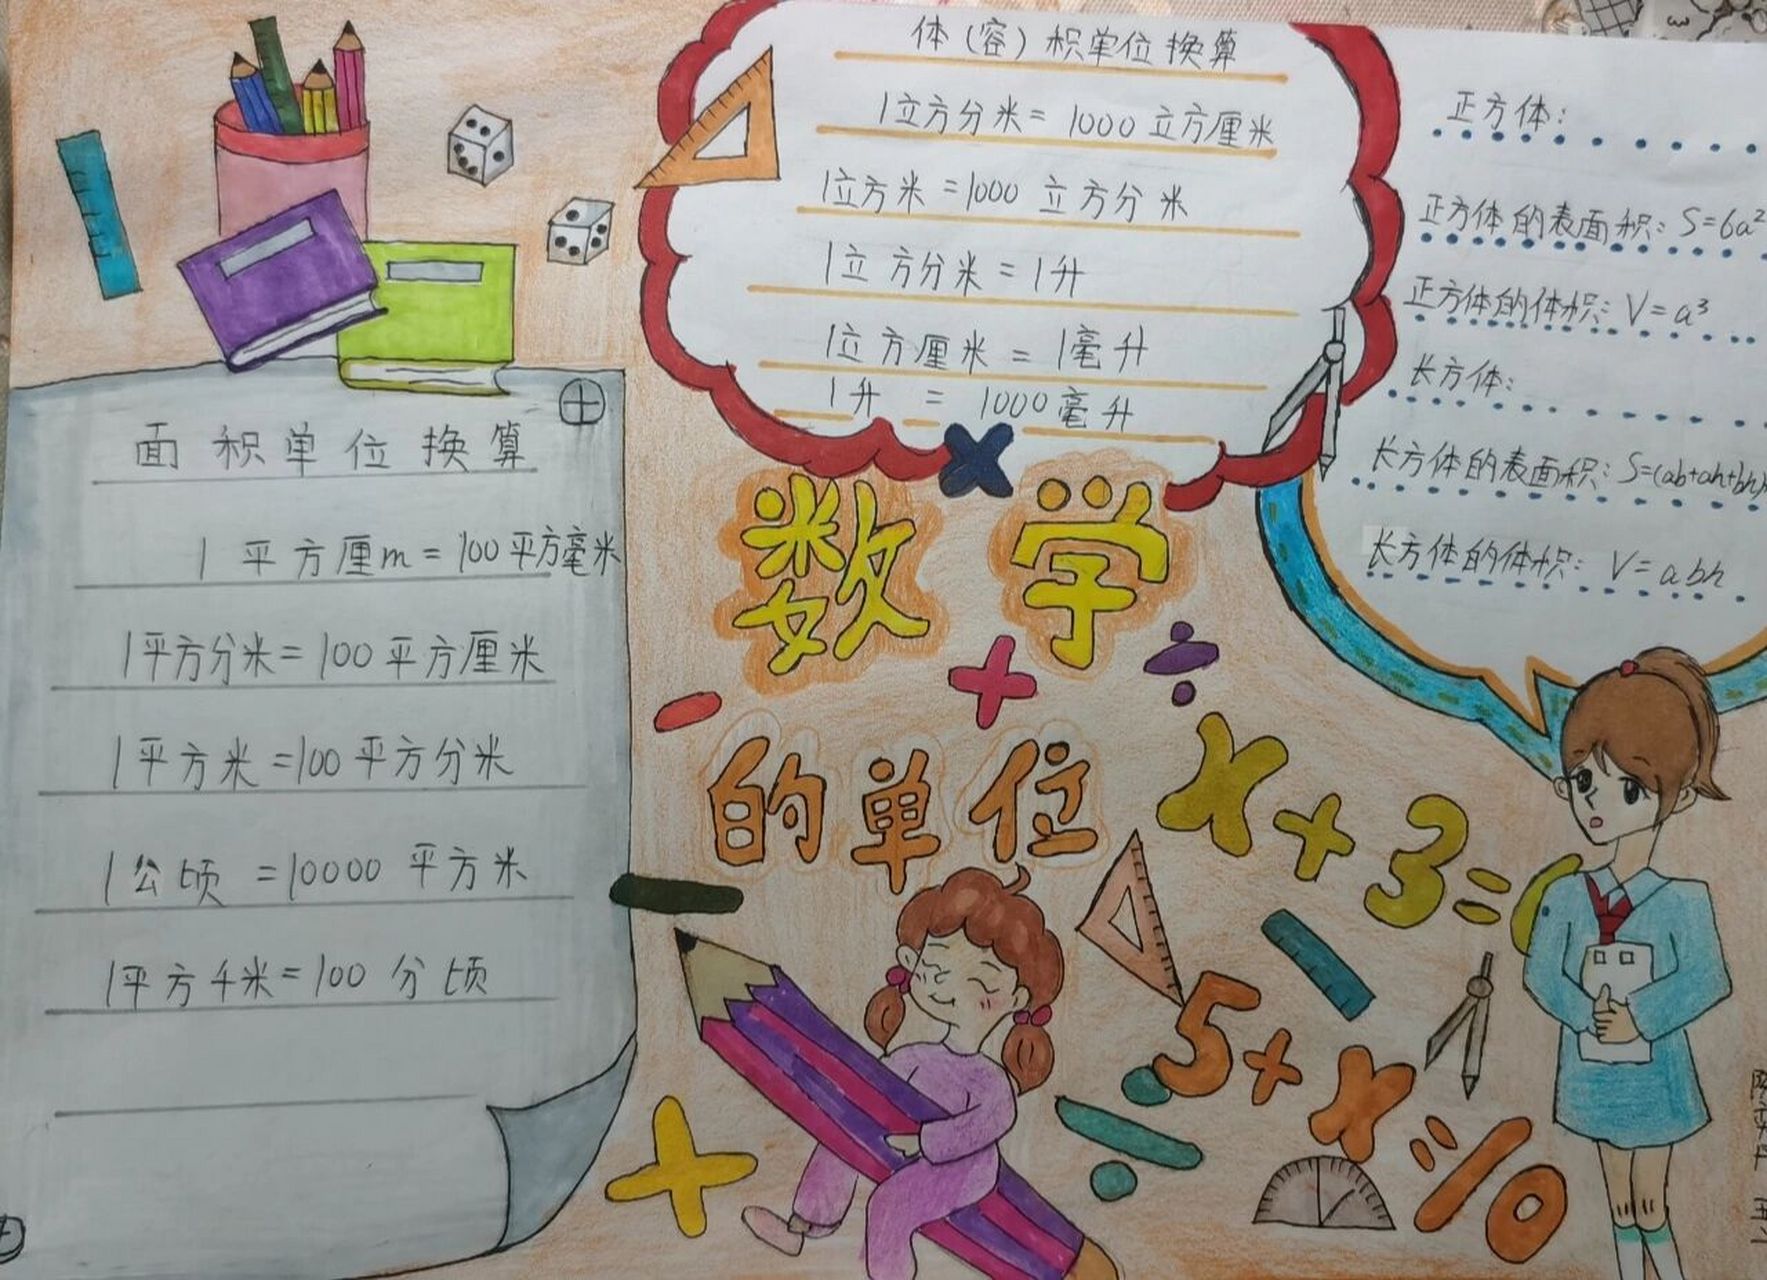 体(容)积单位换算
1立方分米=1000立方厘米
1立方米=1000立方分米
1立方分米=1升
1立方厘米=1毫升
1升=1000毫升
正方体:
正方体的表面积:S=6a²
正方体的体积:V=a³
长方体:
长方体的表面积:S=(ab+ah+bh)
长方体的体积:V=abh
面积单位换算
1平方厘m=100平方毫米
1平方分米=100平方厘米
1平方米=100平方分米
1公顷=10000平方米
1平方千米=100分顷
数学
的单位
x+3=
5+x
10